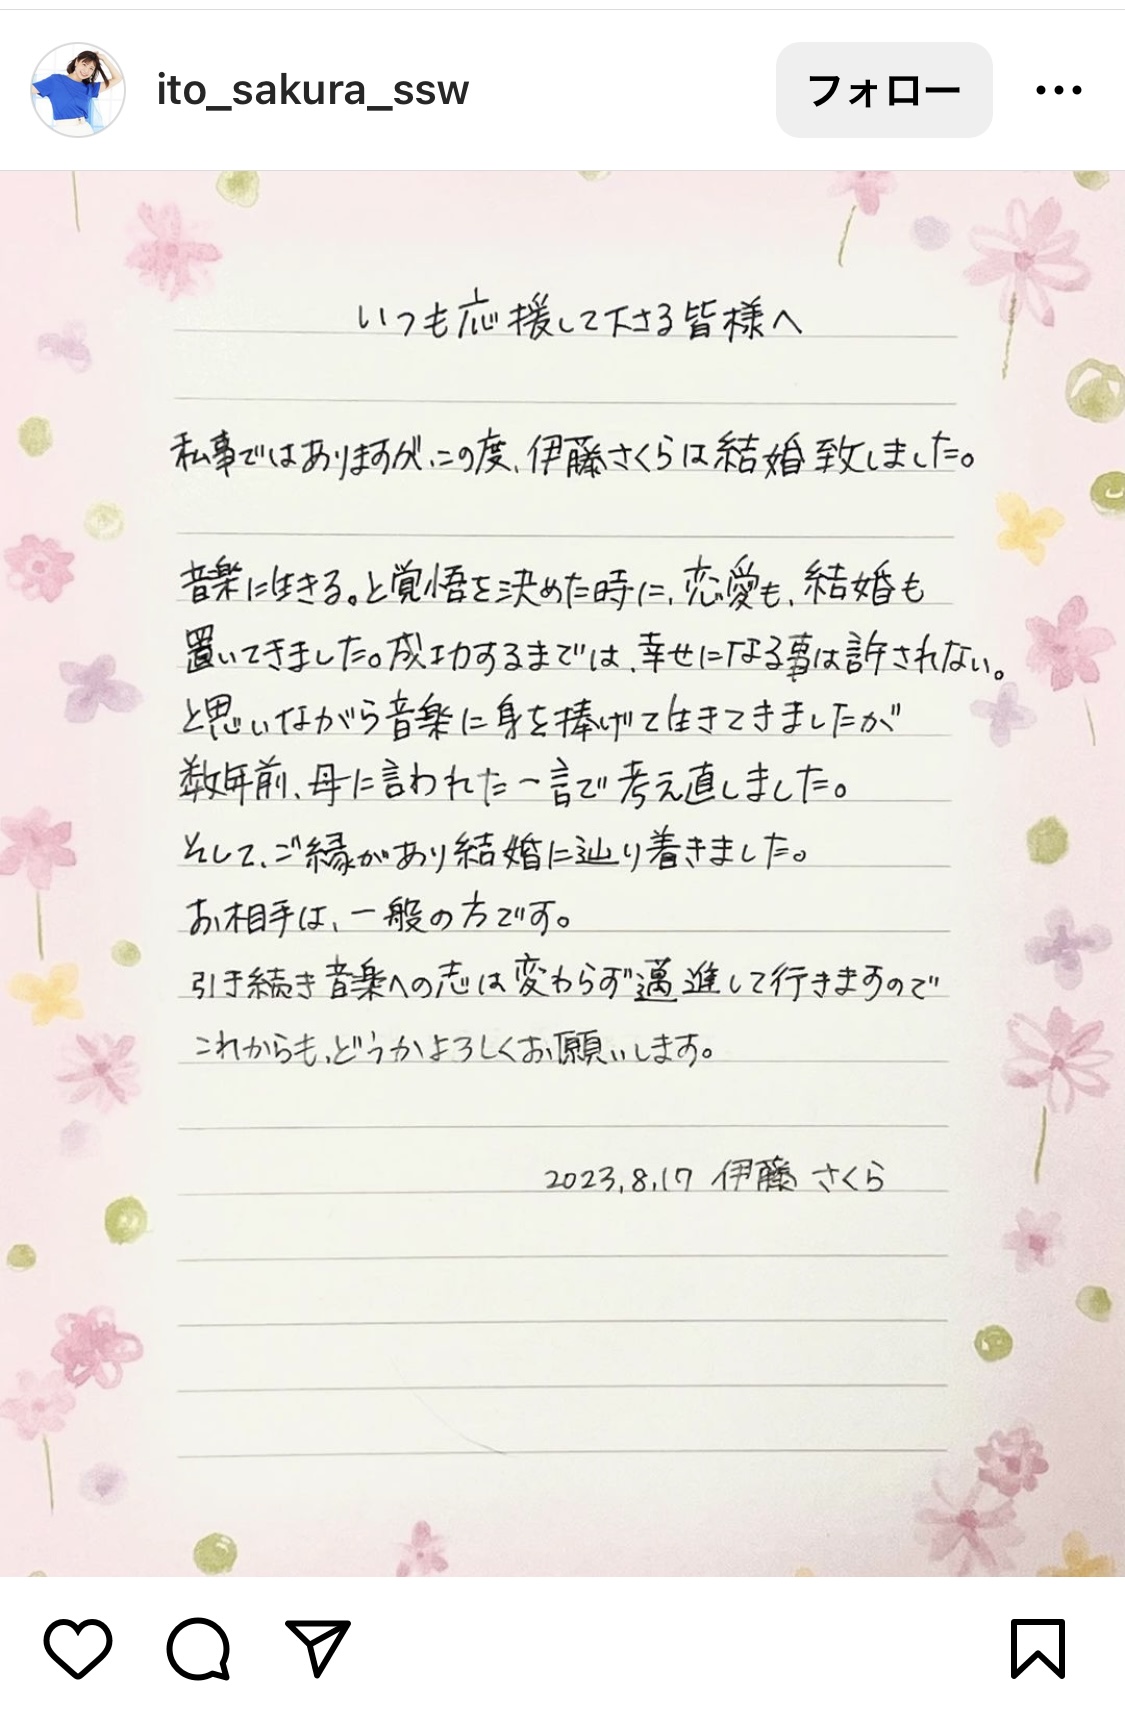 ito_sakura_ssw
フォロー
いつも応援して下さる皆様へ
私事ではありますが、この度、伊藤さくらは結婚致しました。
音楽に生きる。と覚悟を決めた時に、恋愛も、結婚も
置いてきました。成功するまでは、幸せになる事は許されない。
と思いながら音楽に身を捧げて生きてきましたが
数年前、母に言われた一言で考え直しました。
そして、ご縁があり結婚に辿り着きました。
お相手は、一般の方です。
引き続き音楽への志は変わらず邁進して行きますので
これからも、どうかよろしくお願いします。
2023.8.17 伊藤 さくら